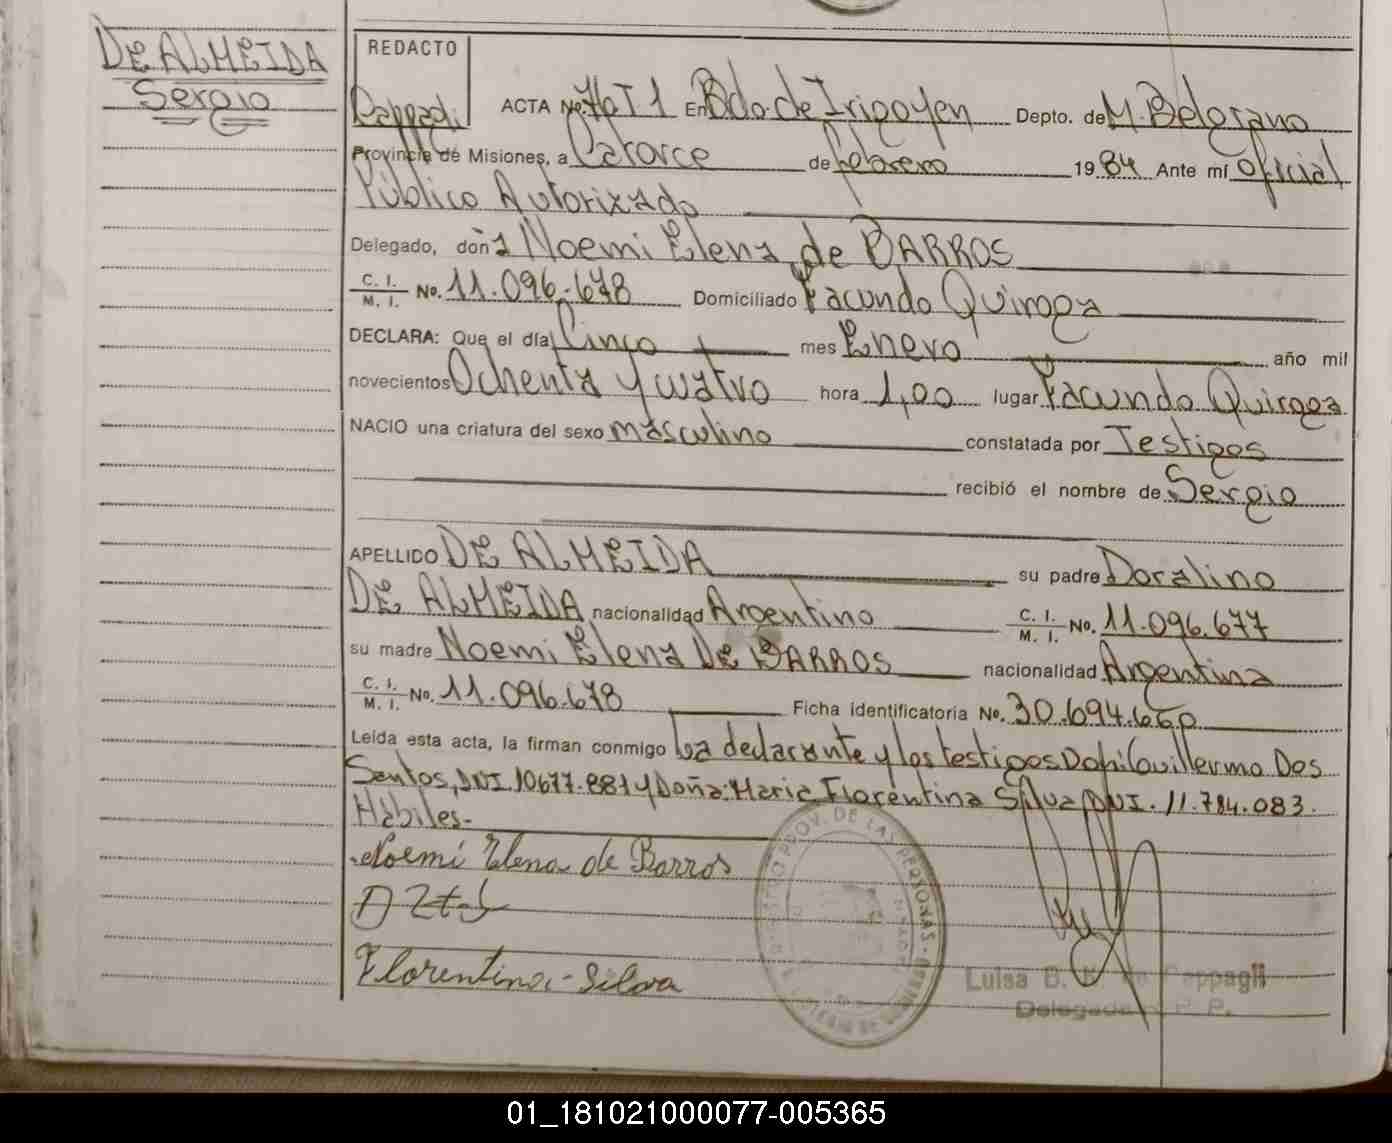 DE ALMEIDA
Sergio
REDACTO
Pappagli
ACTA No. T 1 En Bdo. de Irigoyen Depto. de M. Belgrano
Provincia de Misiones, a Catorce de febrero 1984 Ante mí oficial
Público Autorizado
Delegado, doña Noemi Elena de BARROS
C. I. M. I. No. 11.096.678 Domiciliado Facundo Quiroga
DECLARA: Que el día Cinco mes Enero año mil
novecientos Ochenta y cuatro hora 1,00 lugar Facundo Quiroga
NACIO una criatura del sexo masculino constatada por Testigos
recibió el nombre de Sergio
APELLIDO DE ALMEIDA su padre Doralino
DE ALMEIDA nacionalidad Argentino C. I. M. I. No. 11.096.677
su madre Noemi Elena DE BARROS nacionalidad Argentina
C. I. M. I. No. 11.096.678 Ficha identificatoria No. 30.694.660
Leída esta acta, la firman conmigo La declarante y los testigos Don Guillermo Dos
Santos, DNI. 10677.881 y Doña: Maria Florentina Silva DNI. 11.784.083.
Hábiles.-
Noemi Elena de Barros
Florentina - Silva
PROV. DE LAS PERSONAS
Luisa D. de Pappagli
Delegada R. P. P.
01_181021000077-005365